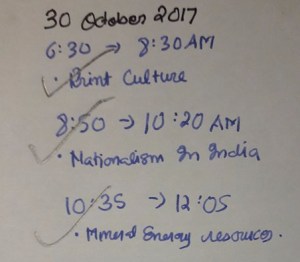 30 October 2017
6:30 → 8:30 AM
• Print Culture
8:50 → 10:20 AM
• Nationalism In India
10:35 → 12:05
• Mineral Energy resources.